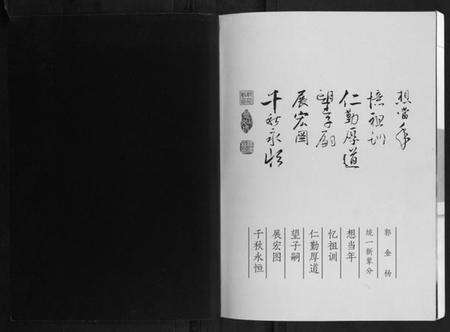 想当年
忆祖训
仁勤厚道
望子嗣
展宏图
千秋永恒
郭金杨
统一新辈分
想当年
忆祖训
仁勤厚道
望子嗣
展宏图
千秋永恒